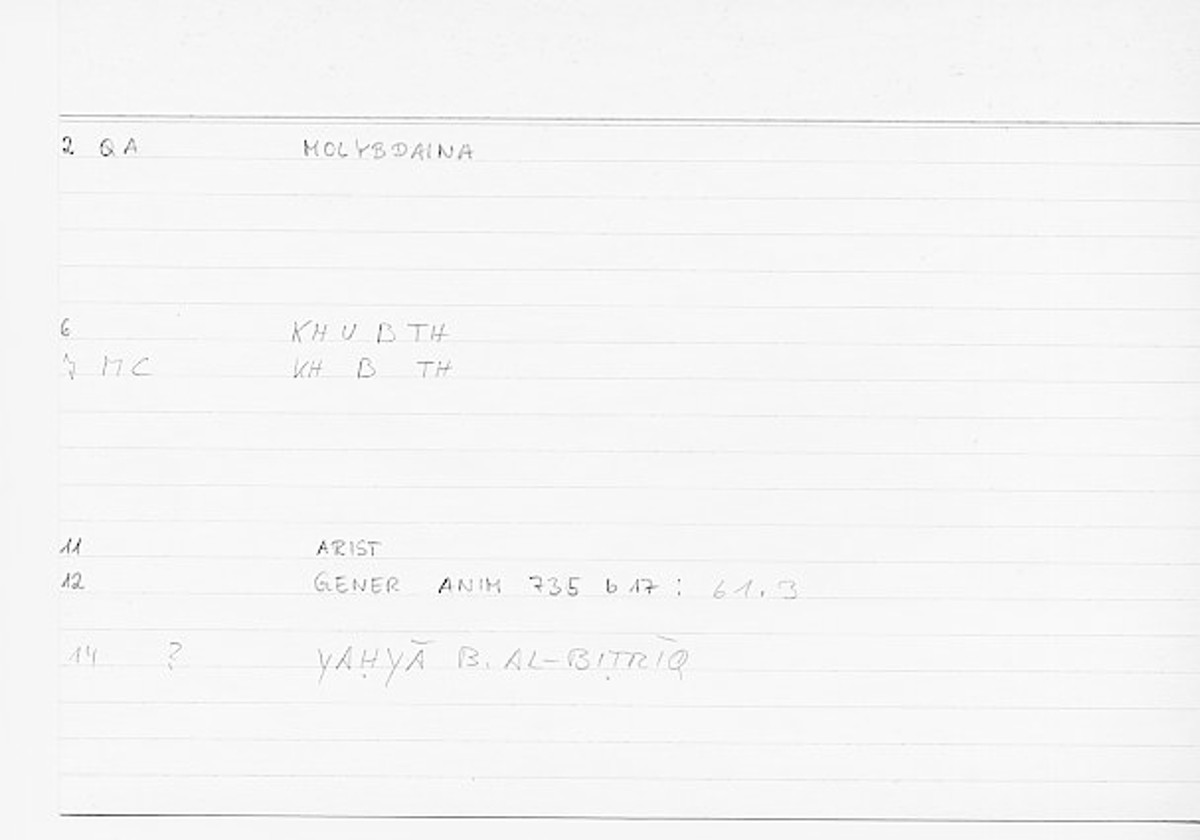 2 QA MOLYBDAINA
6 KH U B TH
7 MC KH B TH
11 ARIST
12 GENER ANIM 735 b 17 : 61.3
14 ? YAḤYĀ B. AL-BIṬRĪQ